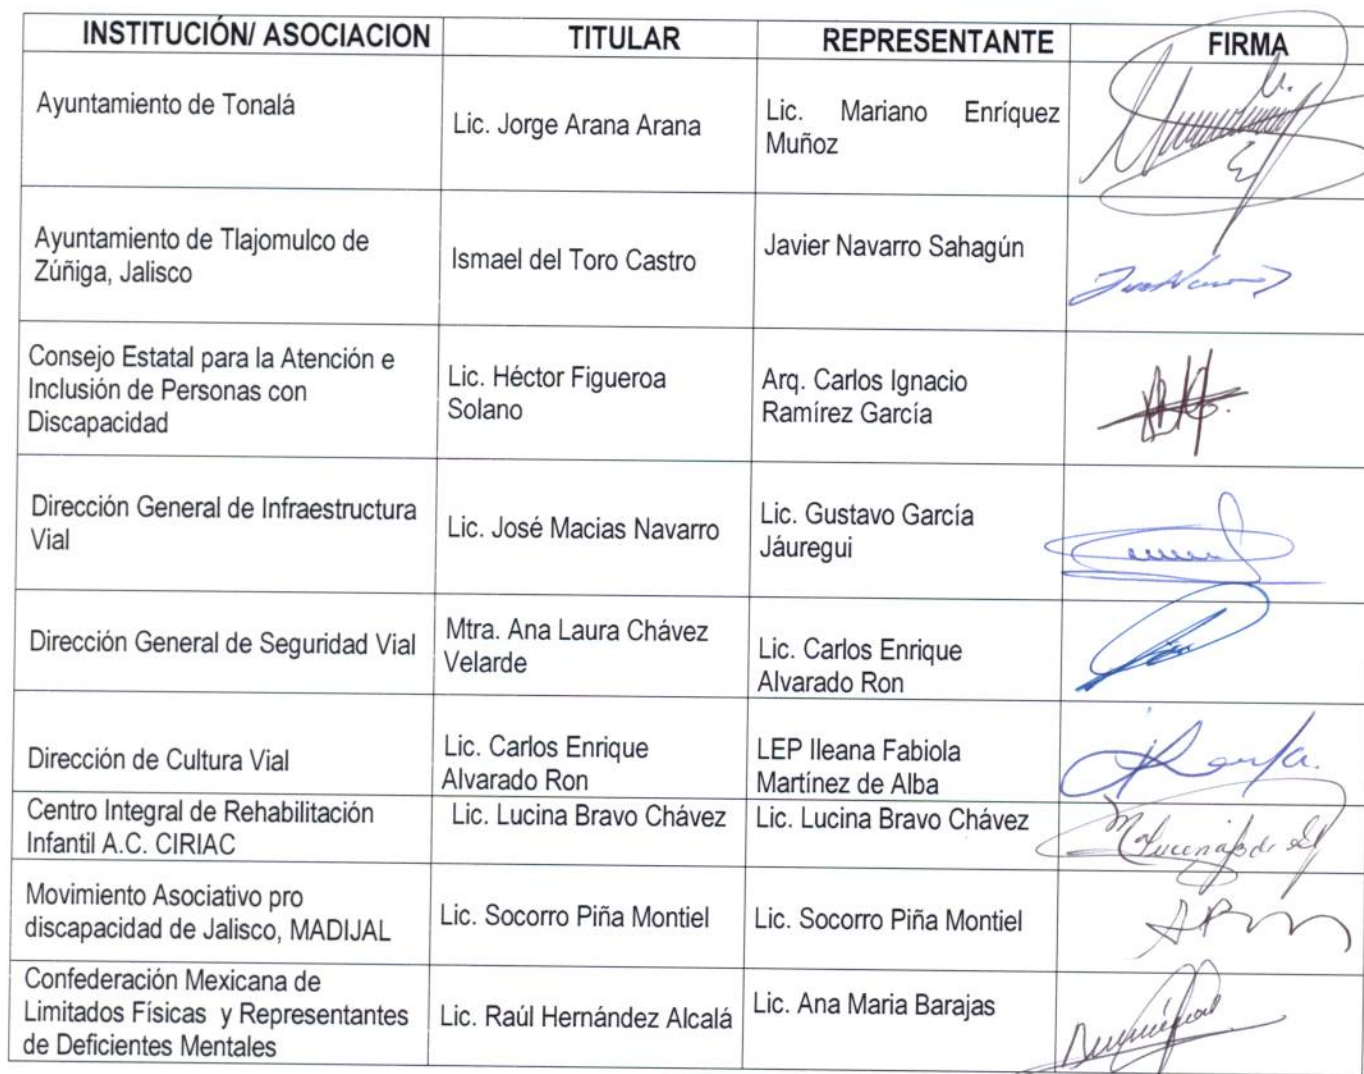 INSTITUCIÓN/ ASOCIACION TITULAR REPRESENTANTE FIRMA
Ayuntamiento de Tonalá
Lic. Jorge Arana Arana
Lic. Mariano Enríquez
Muñoz
Ayuntamiento de Tlajomulco de
Zúñiga, Jalisco
Ismael del Toro Castro
Javier Navarro Sahagún
Consejo Estatal para la Atención e
Inclusión de Personas con
Discapacidad
Lic. Héctor Figueroa
Solano
Arq. Carlos Ignacio
Ramírez García
Dirección General de Infraestructura
Vial
Lic. José Macias Navarro
Lic. Gustavo García
Jáuregui
Dirección General de Seguridad Vial
Mtra. Ana Laura Chávez
Velarde
Lic. Carlos Enrique
Alvarado Ron
Dirección de Cultura Vial
Lic. Carlos Enrique
Alvarado Ron
LEP Ileana Fabiola
Martínez de Alba
Centro Integral de Rehabilitación
Infantil A.C. CIRIAC
Lic. Lucina Bravo Chávez
Lic. Lucina Bravo Chávez
Movimiento Asociativo pro
discapacidad de Jalisco, MADIJAL
Lic. Socorro Piña Montiel
Lic. Socorro Piña Montiel
Confederación Mexicana de
Limitados Físicas y Representantes
de Deficientes Mentales
Lic. Raúl Hernández Alcalá
Lic. Ana Maria Barajas